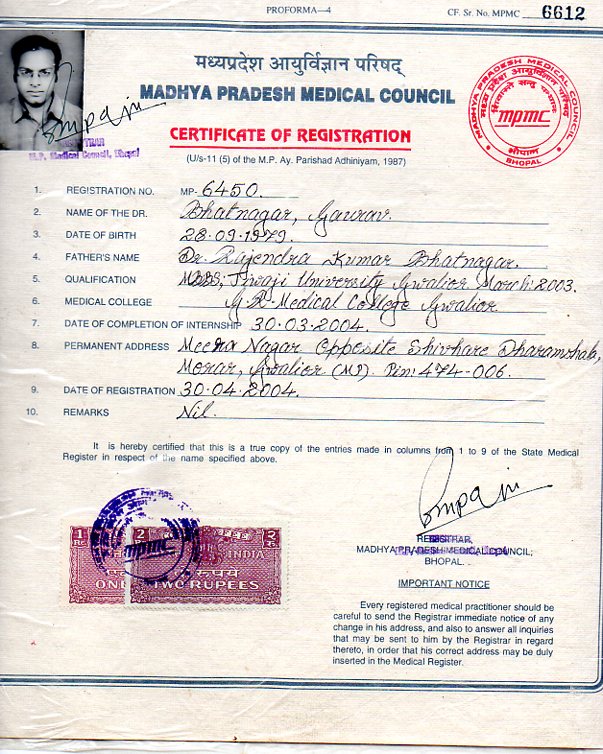 PROFORMA—4
CF. Sr. No. MPMC 6612
मध्यप्रदेश आयुर्विज्ञान परिषद्
MADHYA PRADESH MEDICAL COUNCIL
CERTIFICATE OF REGISTRATION
(U/s-11 (5) of the M.P. Ay. Parishad Adhiniyam, 1987)
MADHYA PRADESH MEDICAL COUNCIL
mpmc
भोपाल
BHOPAL
M.P. Medical Council, Bhopal
1. REGISTRATION NO. MP- 6450.
2. NAME OF THE DR. Bhatnagar, Gaurav.
3. DATE OF BIRTH 28.09.1979.
4. FATHER'S NAME Dr. Rajendra Kumar Bhatnagar.
5. QUALIFICATION MBBS, Jiwaji University Gwalior March. 2003.
6. MEDICAL COLLEGE G.R. Medical College Gwalior
7. DATE OF COMPLETION OF INTERNSHIP 30.03.2004.
8. PERMANENT ADDRESS Meera Nagar Opposite Shivhare Dharamshala,
Morar, Gwalior (MP). Pin: 474-006.
9. DATE OF REGISTRATION 30.04.2004.
10. REMARKS Nil.
It is hereby certified that this is a true copy of the entries made in columns from 1 to 9 of the State Medical
Register in respect of the name specified above.
REGISTRAR,
MADHYA PRADESH MEDICAL COUNCIL;
BHOPAL.
mpmc
1 Re
2 INDIA 2 रु.
ONE TWO RUPEES
IMPORTANT NOTICE
Every registered medical practitioner should be
careful to send the Registrar immediate notice of
any change in his address, and also to answer all inquiries
that may be sent to him by the Registrar in regard
thereto, in order that his correct address may be duly
inserted in the Medical Register.